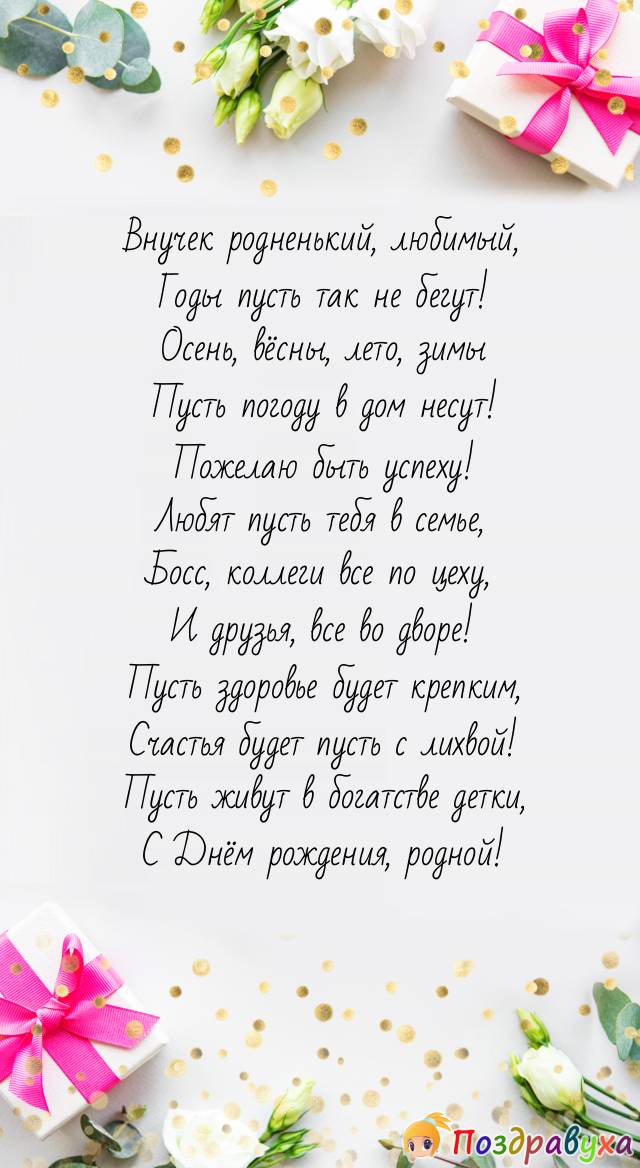 Внучек родненький, любимый,
Годы пусть так не бегут!
Осень, вёсны, лето, зимы
Пусть погоду в дом несут!
Пожелаю быть успеху!
Любят пусть тебя в семье,
Босс, коллеги все по цеху,
И друзья, все во дворе!
Пусть здоровье будет крепким,
Счастья будет пусть с лихвой!
Пусть живут в богатстве детки,
С Днём рождения, родной!
Поздравуха